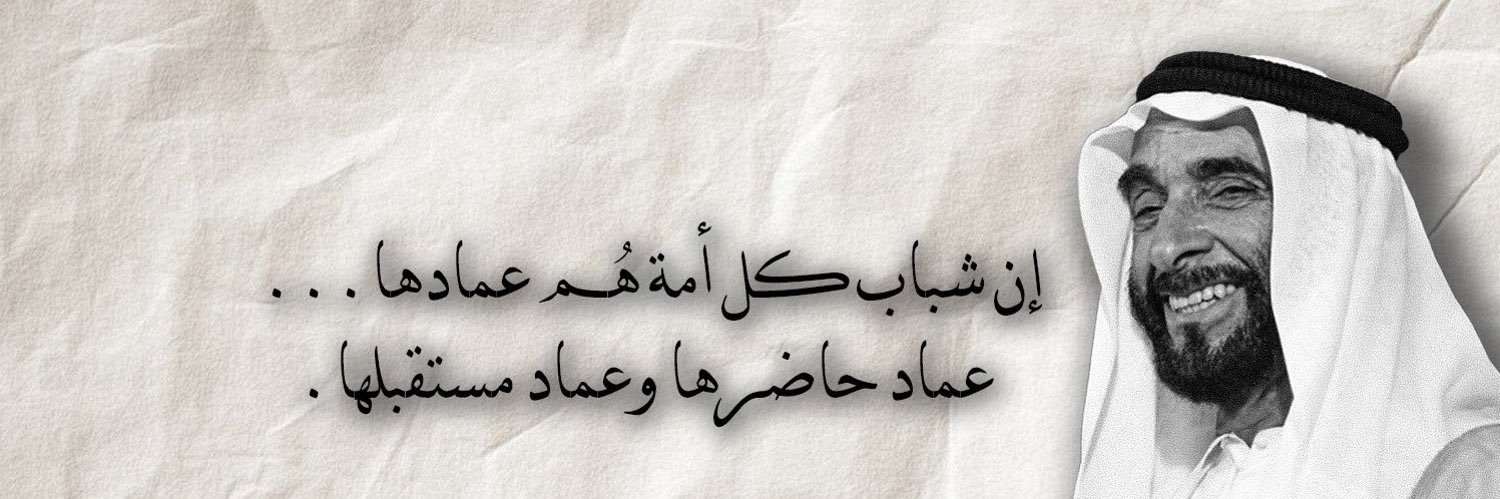 إن شباب كل أمة هُم عمادها . . .
عماد حاضرها وعماد مستقبلها .